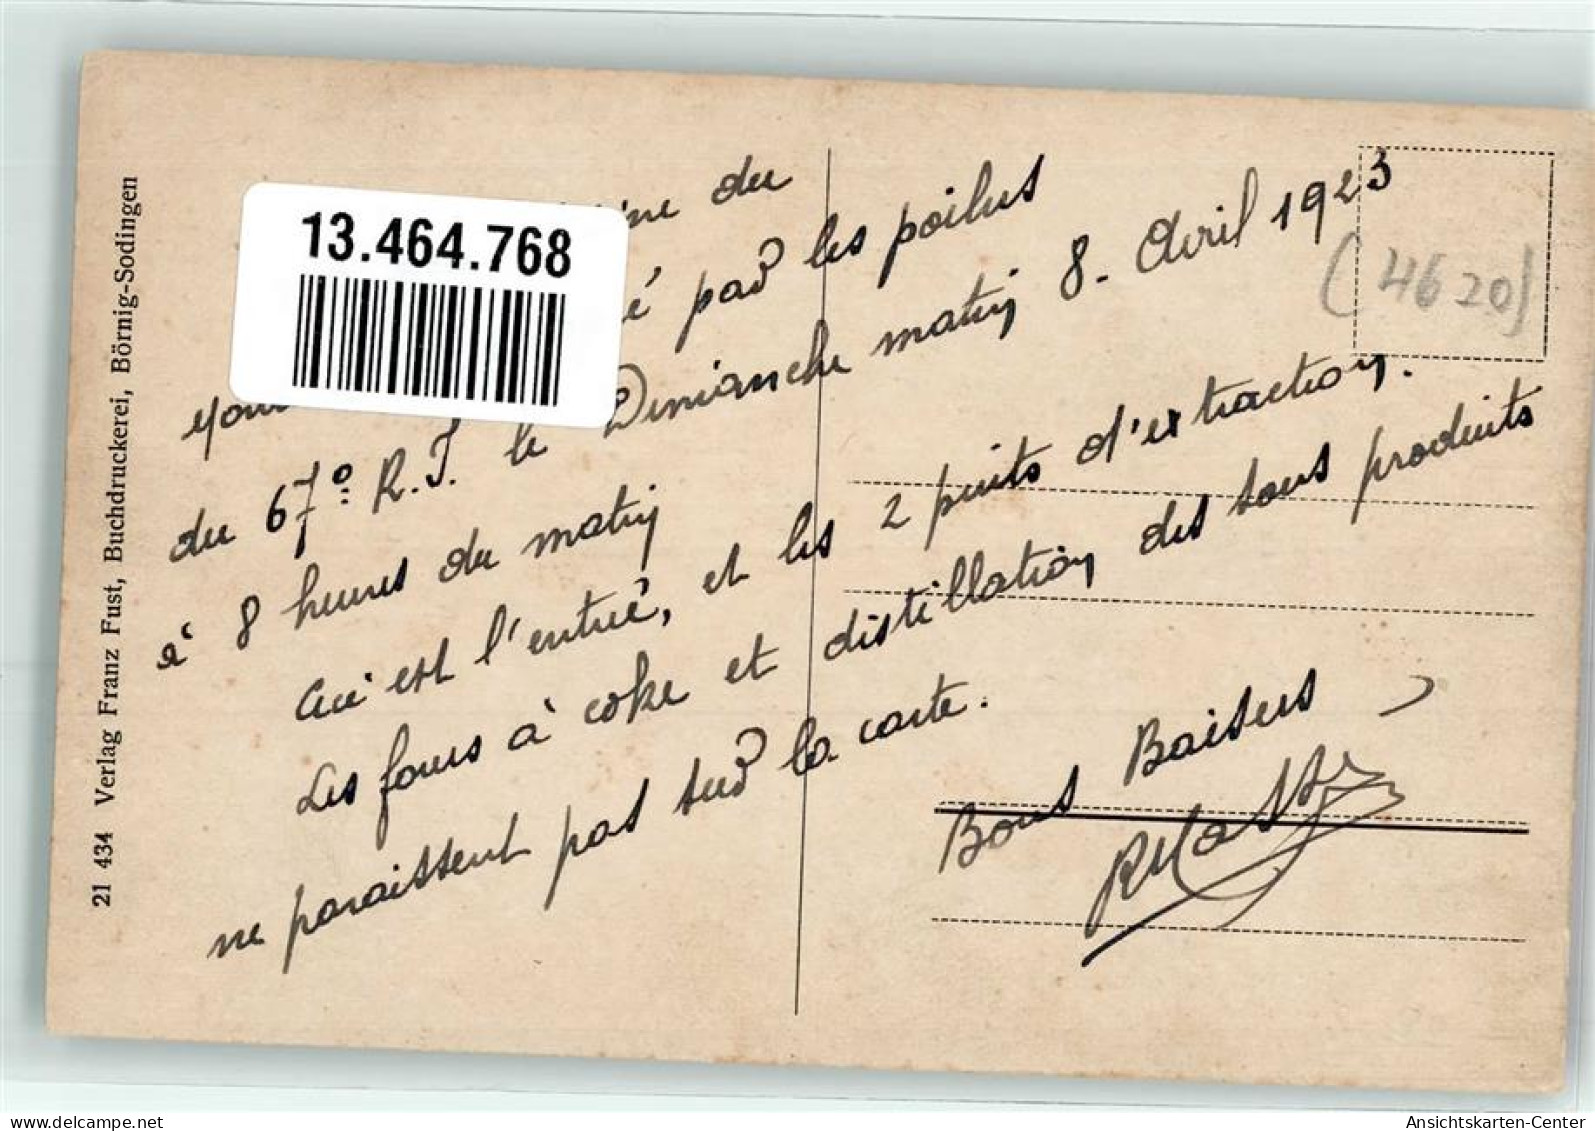 13.464.768
du
é par les poilus
du 67º R.I. le Dimanche matin 8. Avril 1923
à 8 heures du matin
Ceci est l'entrée, et les 2 puits d'extraction.
Les fours à coke et distillation des sous produits
ne paraissent pas sur la carte.
Bons Baisers
(4620)
21 434 Verlag Franz Fust, Buchdruckerei, Börnig-Sodingen
Ansichtskarten-Center